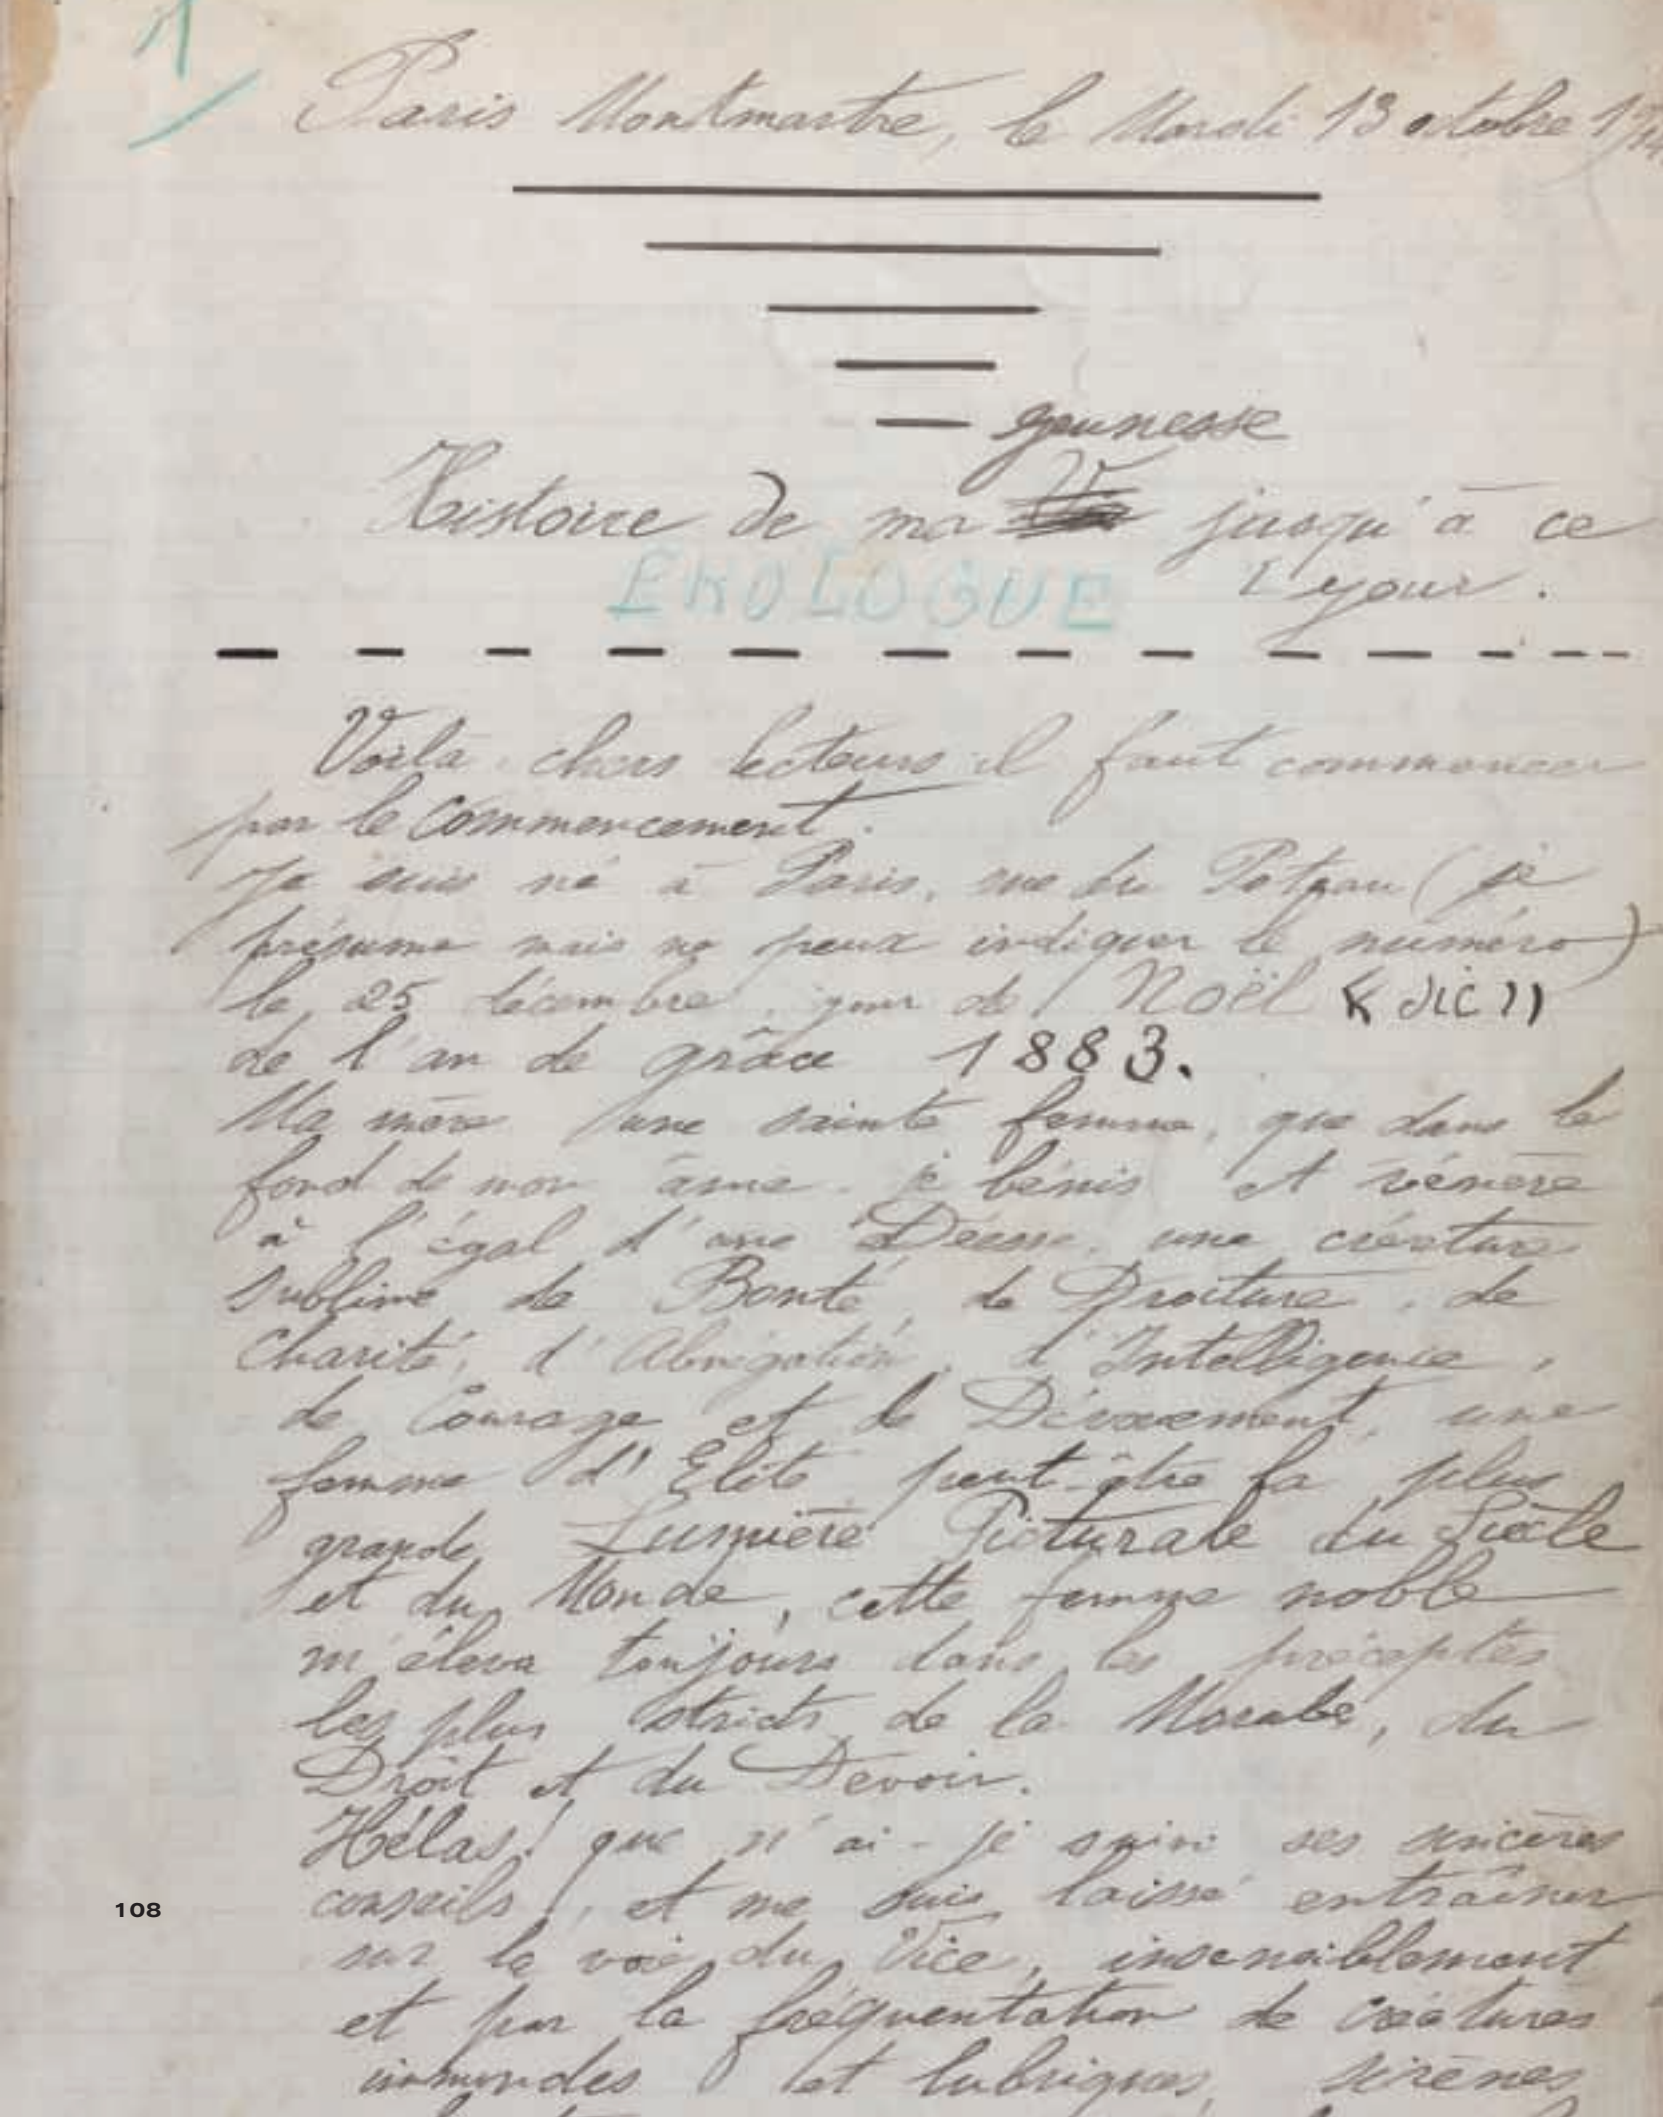 1
Paris Montmartre, le Mardi 13 octobre
jeunesse
Histoire de ma Vie jusqu'à ce
jour.
Voilà chers lecteurs il faut commencer
par le commencement.
Je suis né à Paris, rue du Poteau (je
présume mais ne peux indiquer le numéro)
le 25 décembre, jour de Noël
de l'an de grâce 1883.
Ma mère une sainte femme, que dans le
fond de mon âme je bénis et vénère
à l'égal d'une Déesse, une créature
sublime de Bonté, de Droiture, de
Charité, d'Abnégation, d'Intelligence,
de Courage et de Dévouement, une
femme d'Elite peut-être la plus
grande Lumière Picturale du Siècle
et du Monde, cette femme noble
m'éleva toujours dans les préceptes
les plus stricts de la Morale, du
Droit et du Devoir.
Hélas! que n'ai-je suivi ses sincères
conseils!, et me suis laissé entraîner
sur la voie du Vice, insensiblement
et par la fréquentation de créatures
immondes et lubriques, sirènes
108